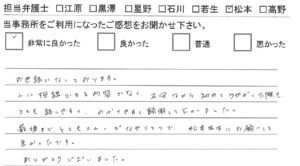 担当弁護士 □江原 □黒澤 □星野 □石川 □若生 ☑松本 □高野
当事務所をご利用になったご感想をお聞かせ下さい。
☑ 非常に良かった □ 良かった □ 普通 □ 悪かった
お世話になっております。
人に相談できる内容でなく、
とても話しやすく、わかりやすく説明して下さいました。
最後まで 松本先生にお願いして
良かったです。
ありがとうございました。